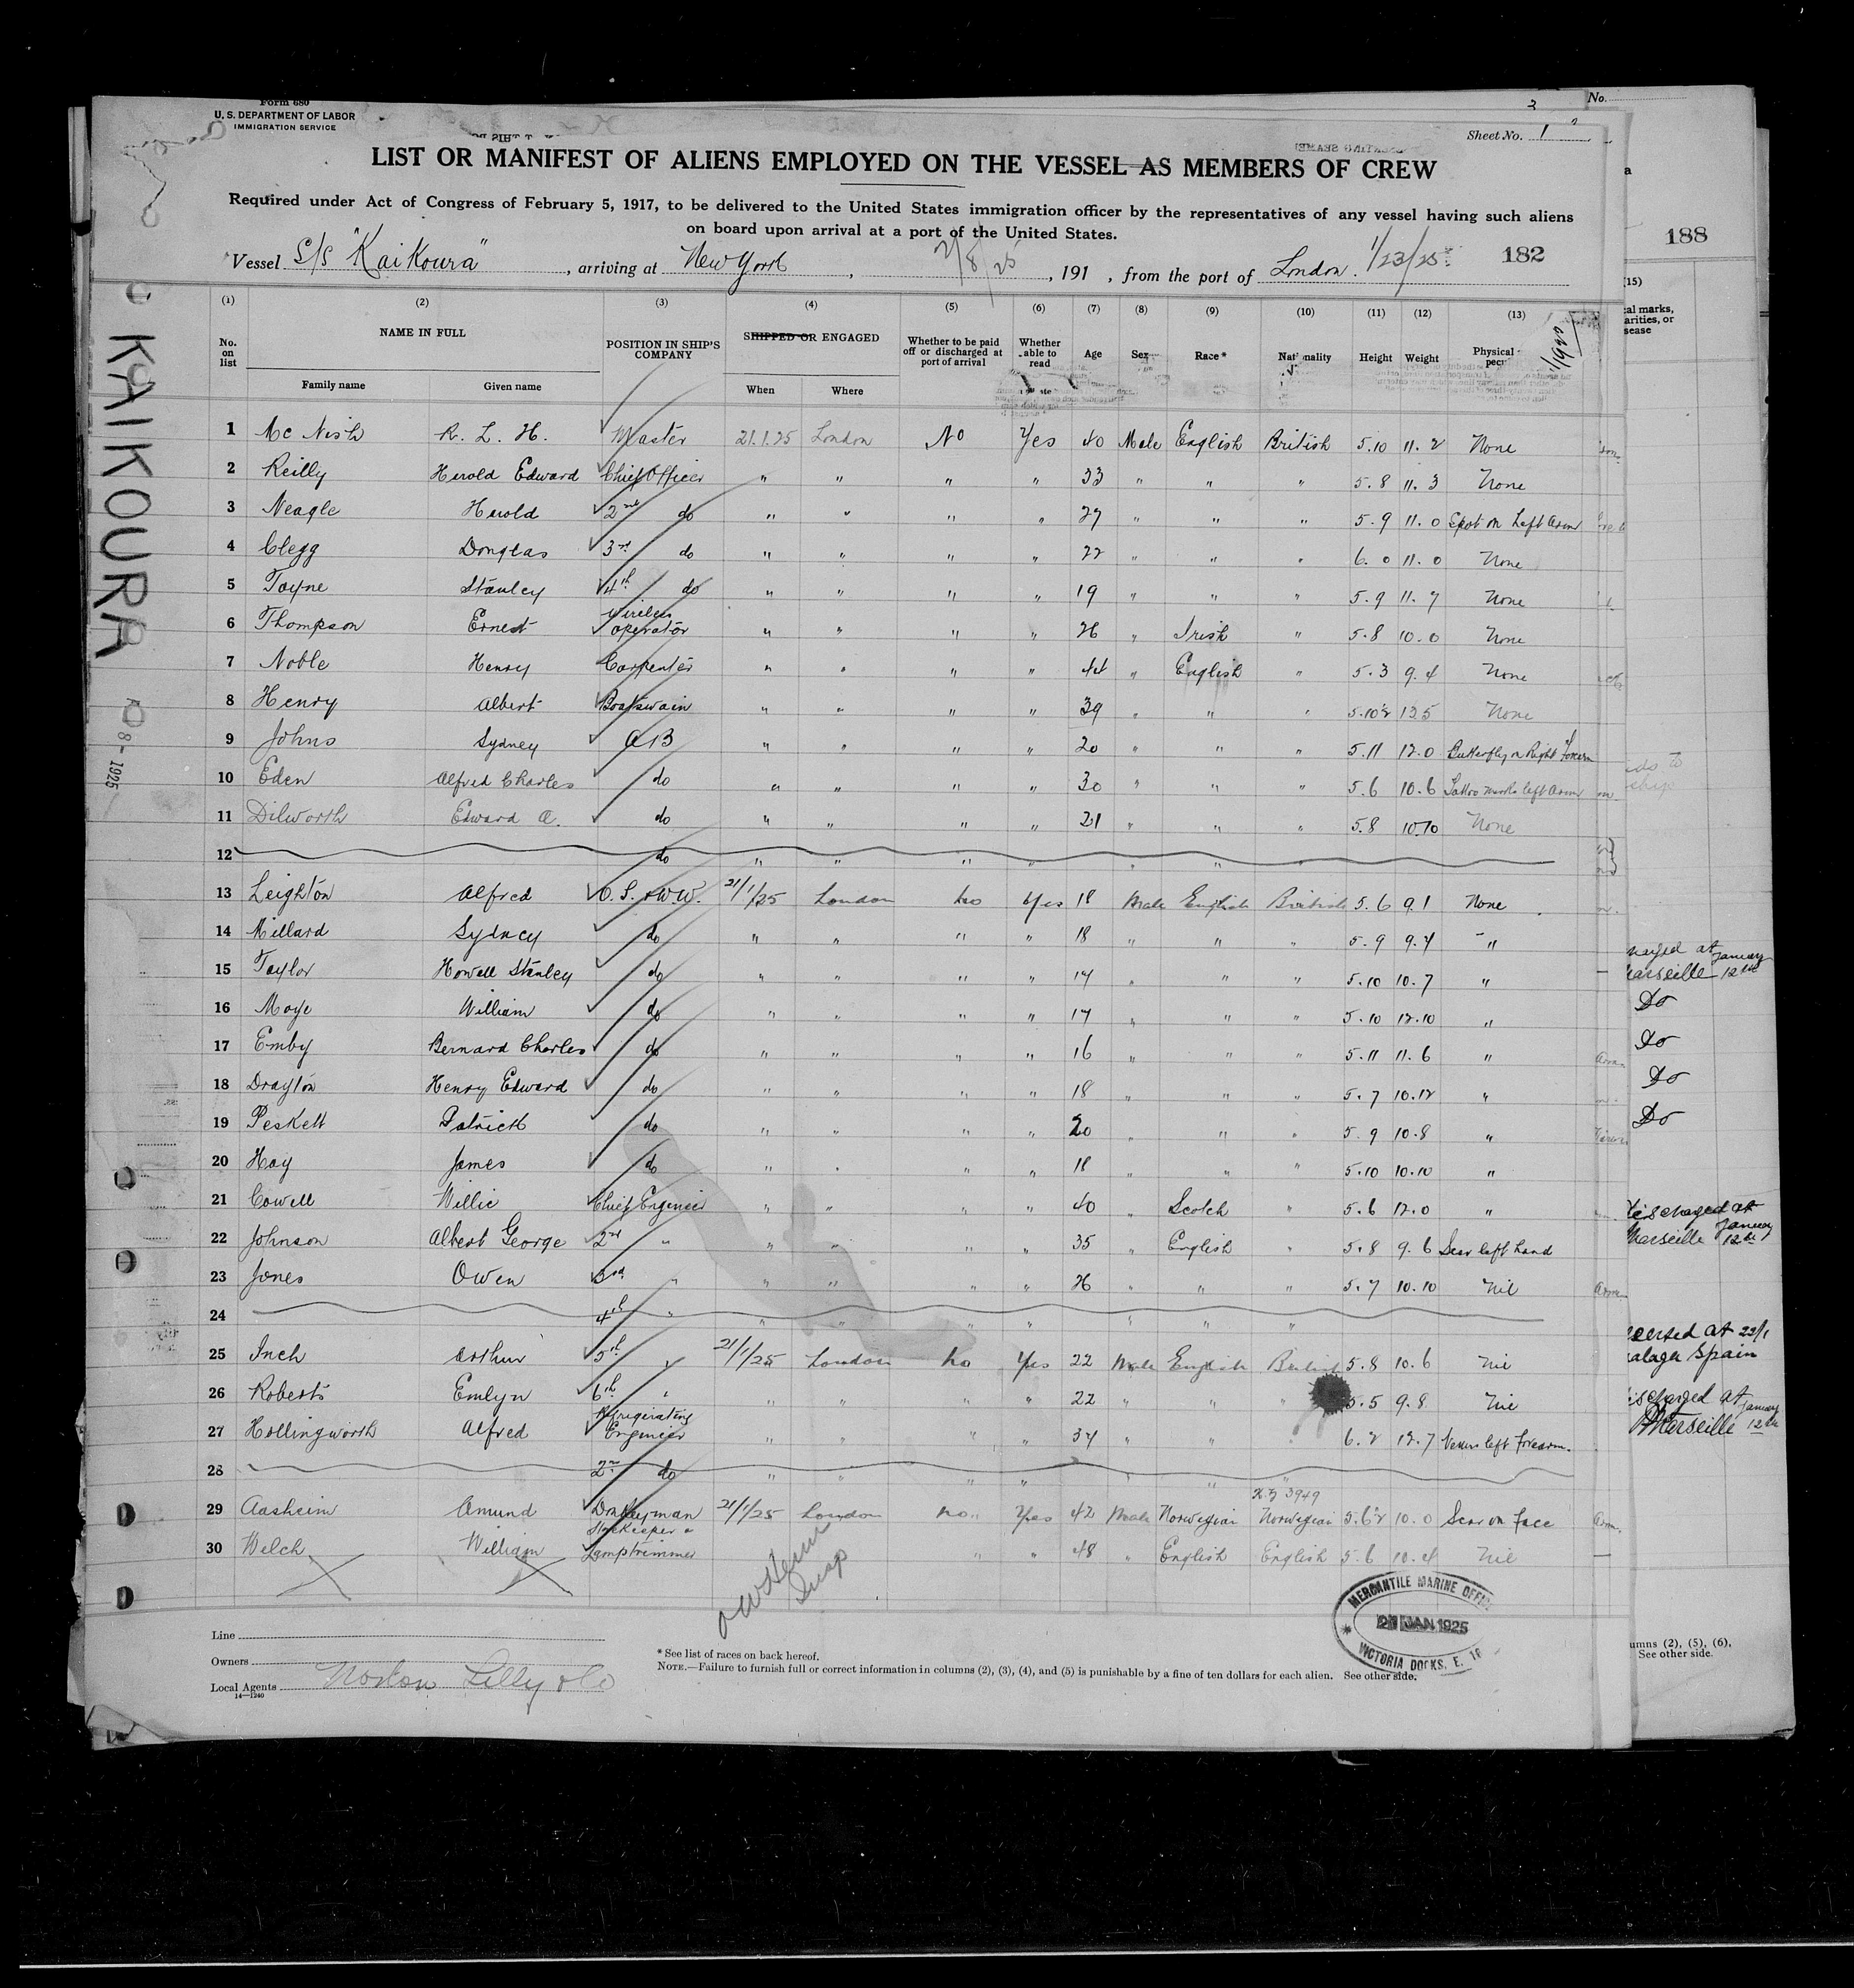 Form 680
U. S. DEPARTMENT OF LABOR
IMMIGRATION SERVICE
3
No.
Sheet No. 1
LIST OR MANIFEST OF ALIENS EMPLOYED ON THE VESSEL AS MEMBERS OF CREW
Required under Act of Congress of February 5, 1917, to be delivered to the United States immigration officer by the representatives of any vessel having such aliens
on board upon arrival at a port of the United States.
188
Vessel S/S "Kaikoura", arriving at New York, 2/8/25, 191 , from the port of London. 1/23/25 182
KAIKOURA
8- 1925
(1) (2) (3) (4) (5) (6) (7) (8) (9) (10) (11) (12) (13) (15)
No. on list
NAME IN FULL
Family name Given name
POSITION IN SHIP'S COMPANY
SHIPPED OR ENGAGED
When Where
Whether to be paid off or discharged at port of arrival
Whether able to read
Age Sex Race* Nationality Height Weight Physical
1 Mc Nish R. L. H. Master 21.1.25 London No Yes 40 Male English British 5.10 11.2 None
2 Reilly Herold Edward Chief Officer " " " " 33 " " " 5.8 11.3 None
3 Neagle Herold 2nd do " " " " 27 " " " 5.9 11.0 Spot on Left Arm
4 Clegg Douglas 3rd do " " " " 22 " " " 6.0 11.0 None
5 Tayne Stanley 4th do " " " " 19 " " " 5.9 11.7 None
6 Thompson Ernest Wireless operator " " " " 26 " Irish " 5.8 10.0 None
7 Noble Henry Carpenter " " " " 44 " English " 5.3 9.4 None
8 Henry Albert Boatswain " " " " 39 " " " 5.10½ 12.5 None
9 Johns Sydney AB " " " " 20 " " " 5.11 12.0 Butterfly on Right Forearm
10 Eden Alfred Charles do " " " " 30 " " " 5.6 10.6 Tattoo marks left arm
11 Dilworth Edward A. do " " " " 21 " " " 5.8 10.10 None
12 do " " " " " " "
13 Leighton Alfred O.S. & W.W. 21/1/25 London No Yes 18 Male English British 5.6 9.1 None
14 Millard Sydney do " " " " 18 " " " 5.9 9.7 "
15 Taylor Howell Stanley do " " " " 17 " " " 5.10 10.7 "
16 Moye William do " " " " 17 " " " 5.10 12.10 "
17 Emby Bernard Charles do " " " " 16 " " " 5.11 11.6 "
18 Drayton Henry Edward do " " " " 18 " " " 5.7 10.12 "
19 Peskett Patrick do " " " " 20 " " " 5.9 10.8 "
20 Hay James do " " " " 18 " " " 5.10 10.10 "
21 Cowell Willie Chief Engineer " " " " 40 " Scotch " 5.6 12.0 "
22 Johnson Albert George 2nd " " " " " 35 " English " 5.8 9.6 Scar left hand
23 Jones Owen 3rd " " " " " 26 " " " 5.7 10.10 Nil
24 4th " " " " " " " "
25 Inch Arthur 5th " 21/1/25 London No Yes 22 Male English British 5.8 10.6 Nil
26 Roberts Emlyn 6th " " " " " 22 " " " 5.5 9.8 Nil
27 Hollingworth Alfred Refrigerating Engineer " " " " 37 " " 6.2 12.7 left forearm.
28 2nd do " " " " " " "
29 Aasheim Amund Donkeyman 21/1/25 London no Yes 42 Male Norwegian Norwegian 5.6½ 10.0 Scar on face
30 Welch William Storekeeper & Lamptrimmer " " 48 " English English 5.6 10.4 Nil
January
Marseille 12th
Do
Do
Do
Do
Discharged at
January
Marseille 12th
at 22/1
Malaga Spain
Discharged at
January
Marseille 12th
Insp
MERCANTILE MARINE OFFICE
JAN 1925
VICTORIA DOCKS, E. 16
Line
Owners
Local Agents Norton Lilly & Co
14—1240
* See list of races on back hereof.
NOTE.—Failure to furnish full or correct information in columns (2), (3), (4), and (5) is punishable by a fine of ten dollars for each alien. See other side.
umns (2), (5), (6),
See other side.